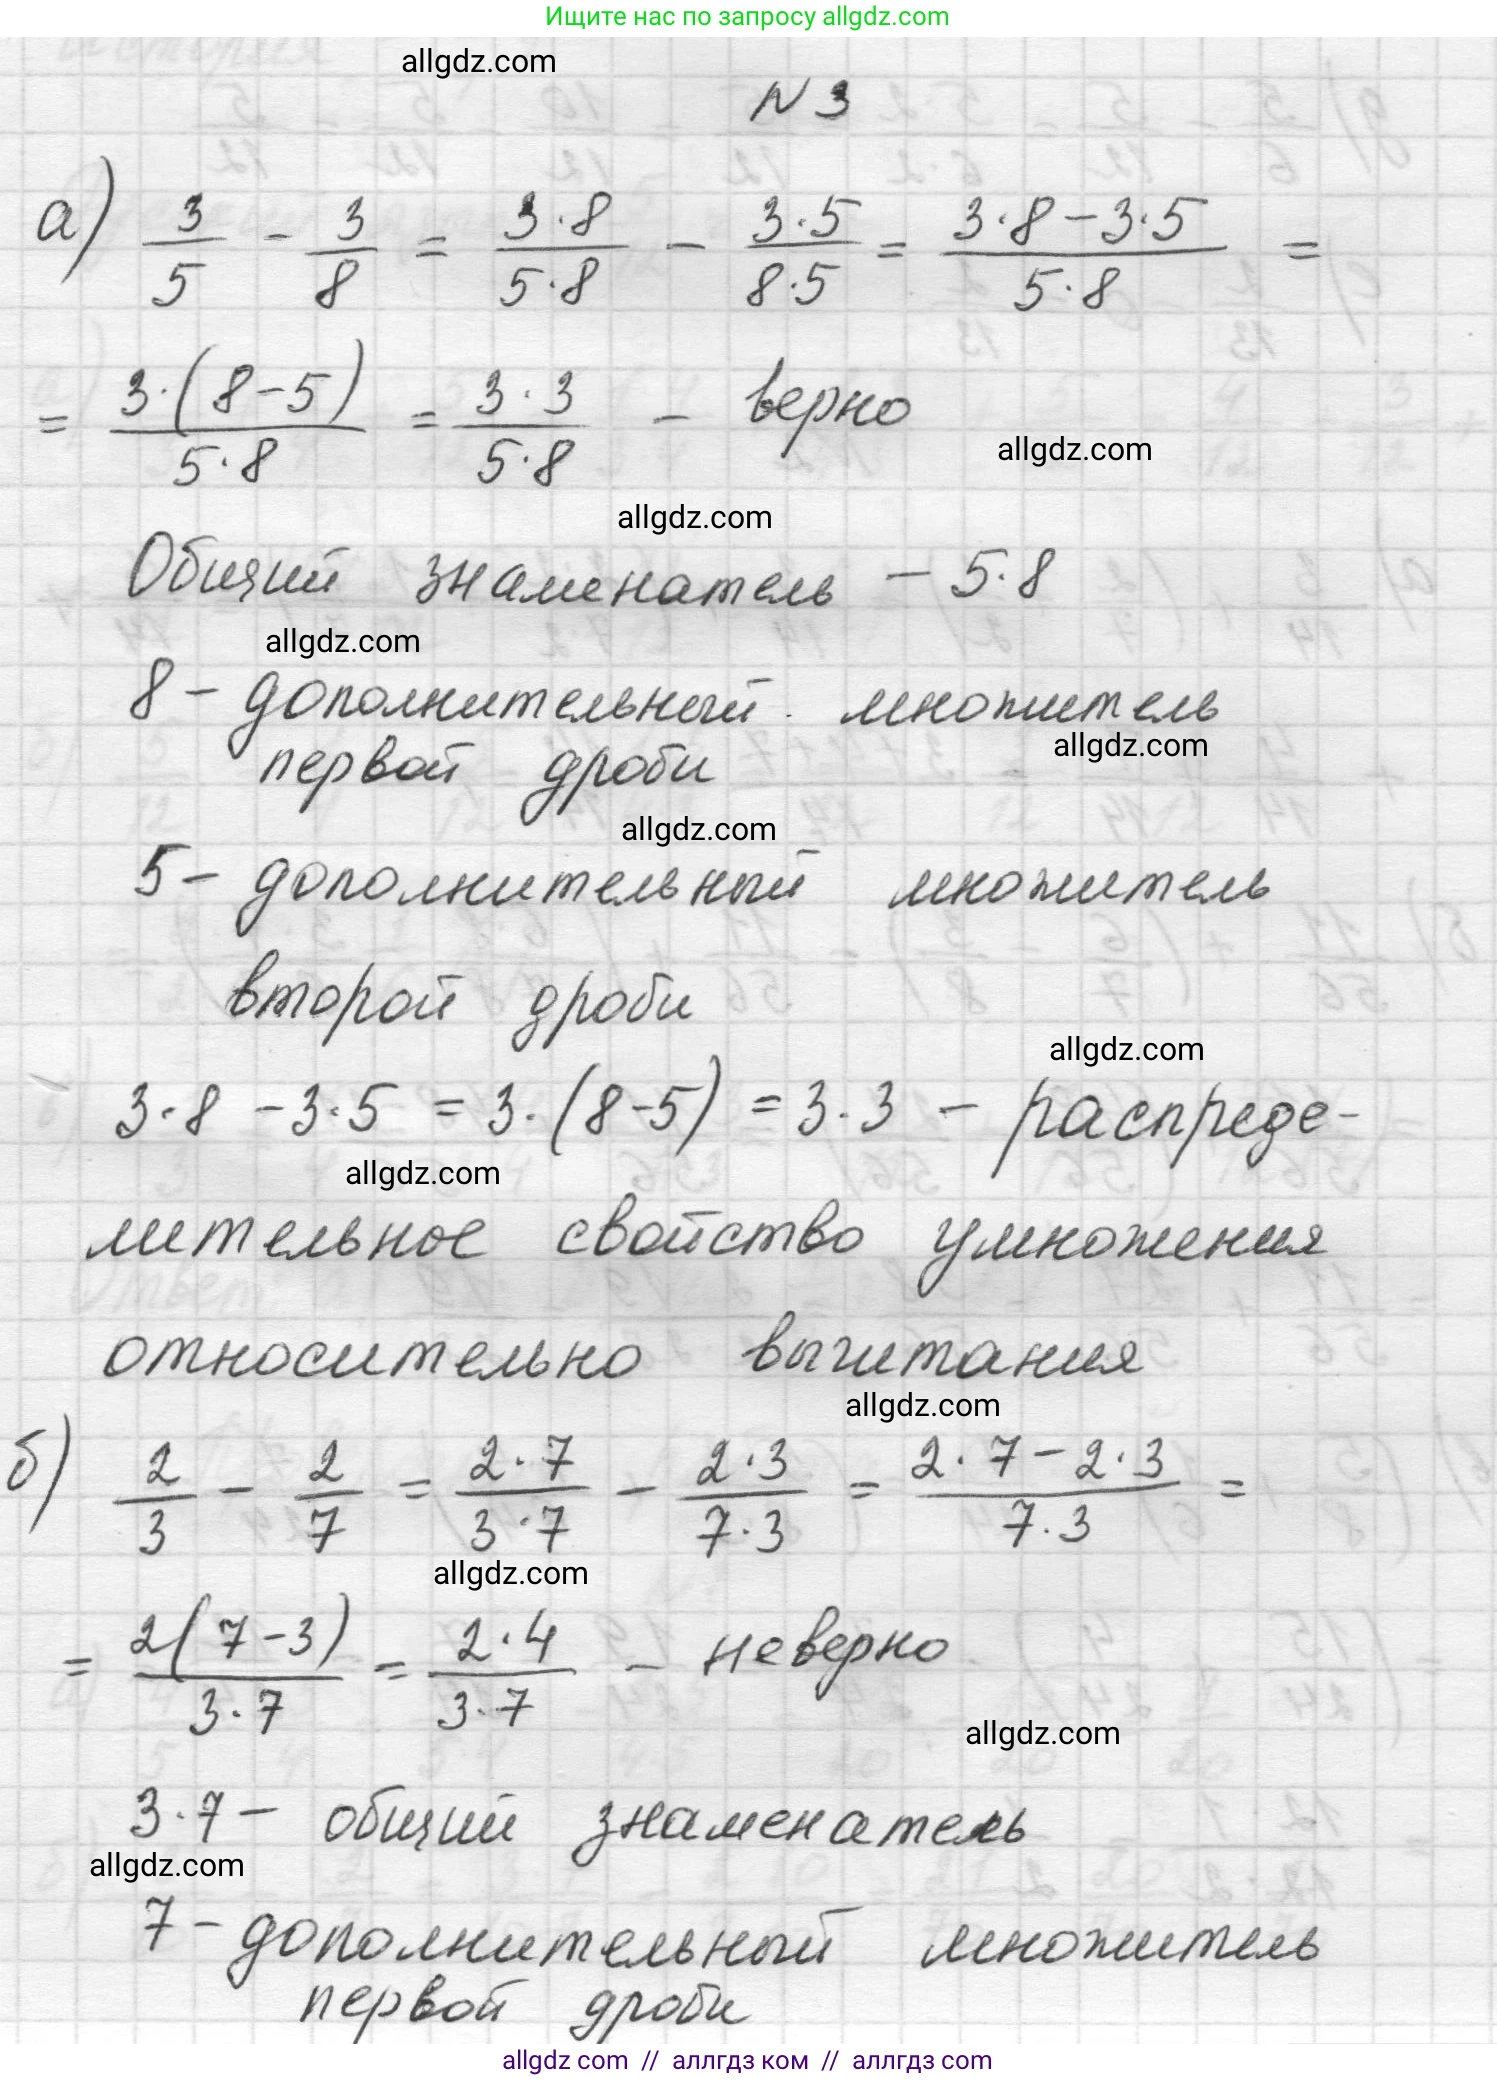 Ищите нас по запросу allgdz.com
allgdz.com
N 3
а) 3/5 - 3/8 = 3·8/5·8 - 3·5/8·5 = 3·8-3·5/5·8 =
= 3·(8-5)/5·8 = 3·3/5·8 - верно
allgdz.com
allgdz.com
Общий знаменатель - 5·8
allgdz.com
8 - дополнительный множитель
allgdz.com
первой дроби
allgdz.com
5 - дополнительный множитель
второй дроби
allgdz.com
3·8 - 3·5 = 3·(8-5) = 3·3 - распреде-
allgdz.com
лительное свойство умножения
относительно вычитания
allgdz.com
б) 2/3 - 2/7 = 2·7/3·7 - 2·3/7·3 = 2·7-2·3/7·3 =
allgdz.com
= 2(7-3)/3·7 = 2·4/3·7 - неверно
allgdz.com
3·7 - общий знаменатель
allgdz.com
7 - дополнительный множитель
первой дроби
allgdz com // аллгдз ком // аллгдз com